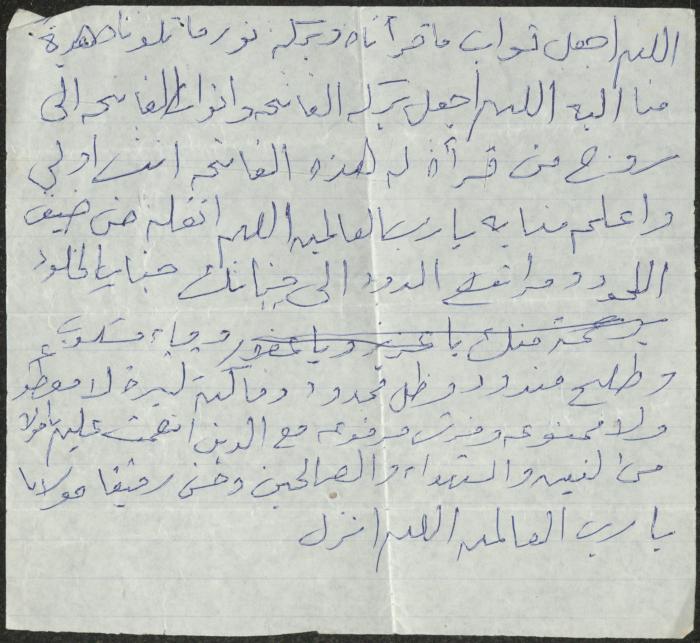 اللهم اجعل ثواب ما قرأناه وبركة نور ما تلوناه هدية
منا اليه اللهم اجعل بركة الفاتحه وانوار الفاتحه الى
روح من قرأة له هذه الفاتحه انت اولى
واعلم منا به يا رب العالمين اللهم انقله من ضيق
اللحود ومراتع الدود الى جنانك جنات الخلود
برحمة منك يا عزيز ويا غفور وماء مسكوب
وطلح مندود وظل محدود وفاكهة كثيرة لا مقطو
ولا ممنوعه وفرش مرفوعه مع الذين انعمت عليهم يا مولانا
من النبين والشهداء والصالحين وحسن رفيقا مولانا
يا رب العالمين اللهم انزل